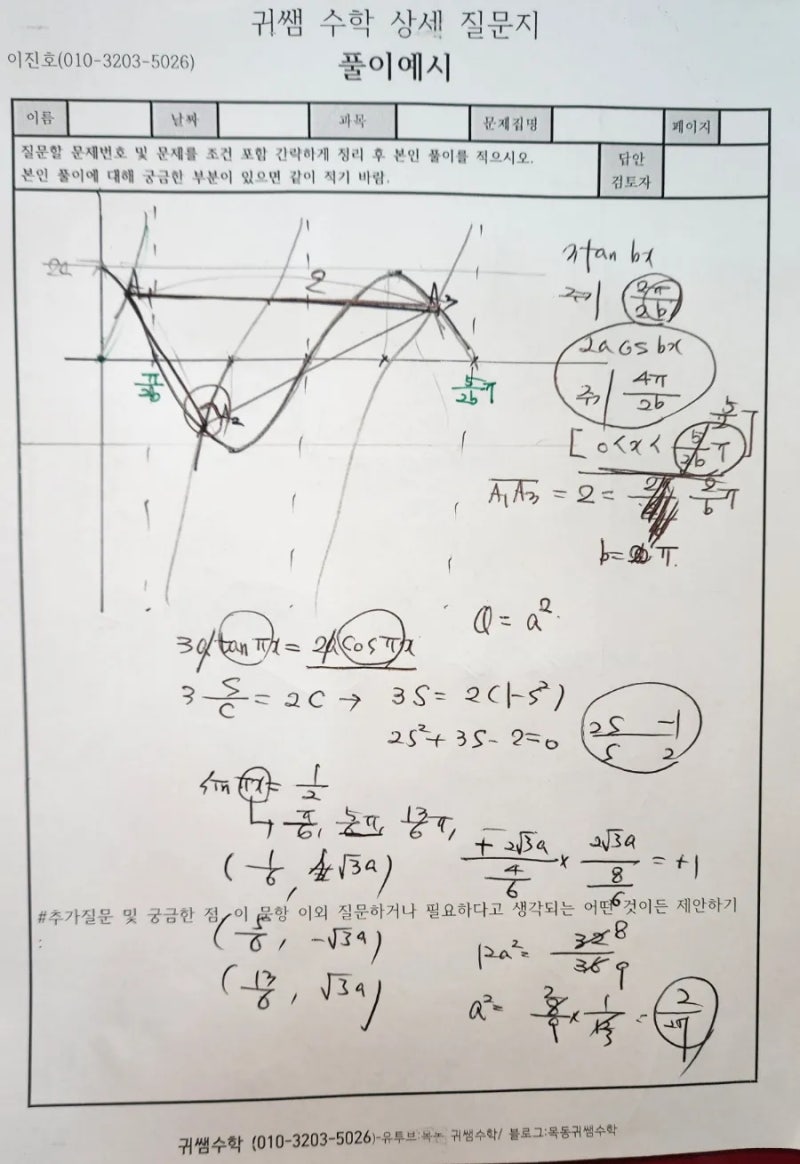 귀쌤 수학 상세 질문지
이진호(010-3203-5026)
풀이예시
이름 날짜 과목 문제집명 페이지
질문할 문제번호 및 문제를 조건 포함 간략하게 정리 후 본인 풀이를 적으시오.
본인 풀이에 대해 궁금한 부분이 있으면 같이 적기 바람.
답안
검토자
2a
A₁ 2 A₃
A₂
π/2b
5/2b π
3tan bx
주기 2π/2b
2a cos bx
주기 4π/2b
[0<x<5/2b π]
A₁A₃ = 2 = 2/b π
b= π.
Q = a².
3a tan πx = 2a cos πx
3 S/C = 2C → 3S = 2(1-S²)
2S²+3S-2=0
2S -1
S 2
sin πx = 1/2
→ π/6, 5/6π, 13/6π,
(1/6, √3a)
-2√3a / 4/6 × 2√3a / 8/6 = +1
#추가질문 및 궁금한 점, 이 문항 이외 질문하거나 필요하다고 생각되는 어떤 것이든 제안하기
:
(5/6, -√3a)
(13/6, √3a)
12a² = 32/36 8/9
a² = 8/9 × 1/12 = 2/27
귀쌤수학 (010-3203-5026)-유투브:목논 귀쌤수학/ 블로그:목동귀쌤수학